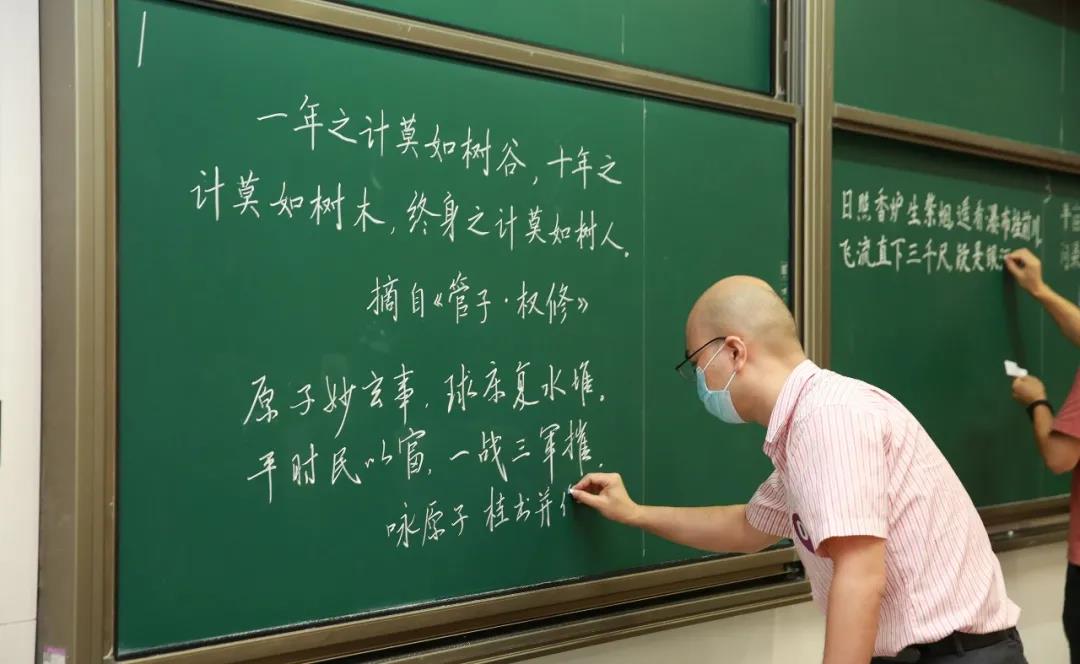 1
一年之计莫如树谷，十年之
计莫如树木，终身之计莫如树人。
摘自《管子·权修》
原子妙玄事，球床复水堆。
平时民以富，一战三军摧。
咏原子 桂书并
日照香炉生紫烟遥看瀑布挂前川
飞流直下三千尺疑是银